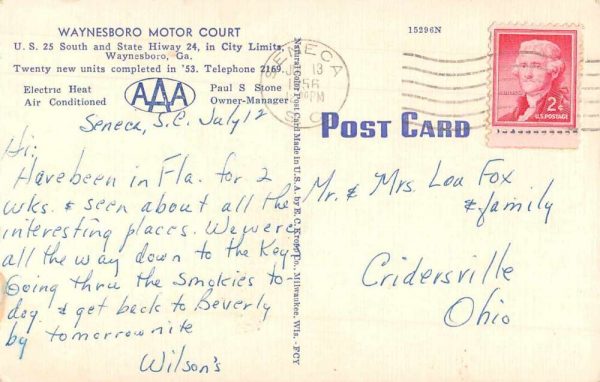 WAYNESBORO MOTOR COURT
U. S. 25 South and State Hiway 24, in City Limits,
Waynesboro, Ga.
Twenty new units completed in '53. Telephone 2169.
Electric Heat
Air Conditioned
AAA
Paul S Stone
Owner-Manager
Seneca, S.C. July 12
Hi;
Have been in Fla. for 2
wks. & seen about all the
interesting places. We were
all the way down to the Key-
Going thru the Smokies to-
day & get back to Beverly
by tomorrow nite
Wilson's
Natural Color Post Card Made in U.S.A. by E. C. Kropp Co., Milwaukee, Wis. -FCY
15296N
SENECA
13
PM
S.C.
2¢
U.S. POSTAGE
POST CARD
Mr. & Mrs. Loa Fox
& family
Cridersville
Ohio